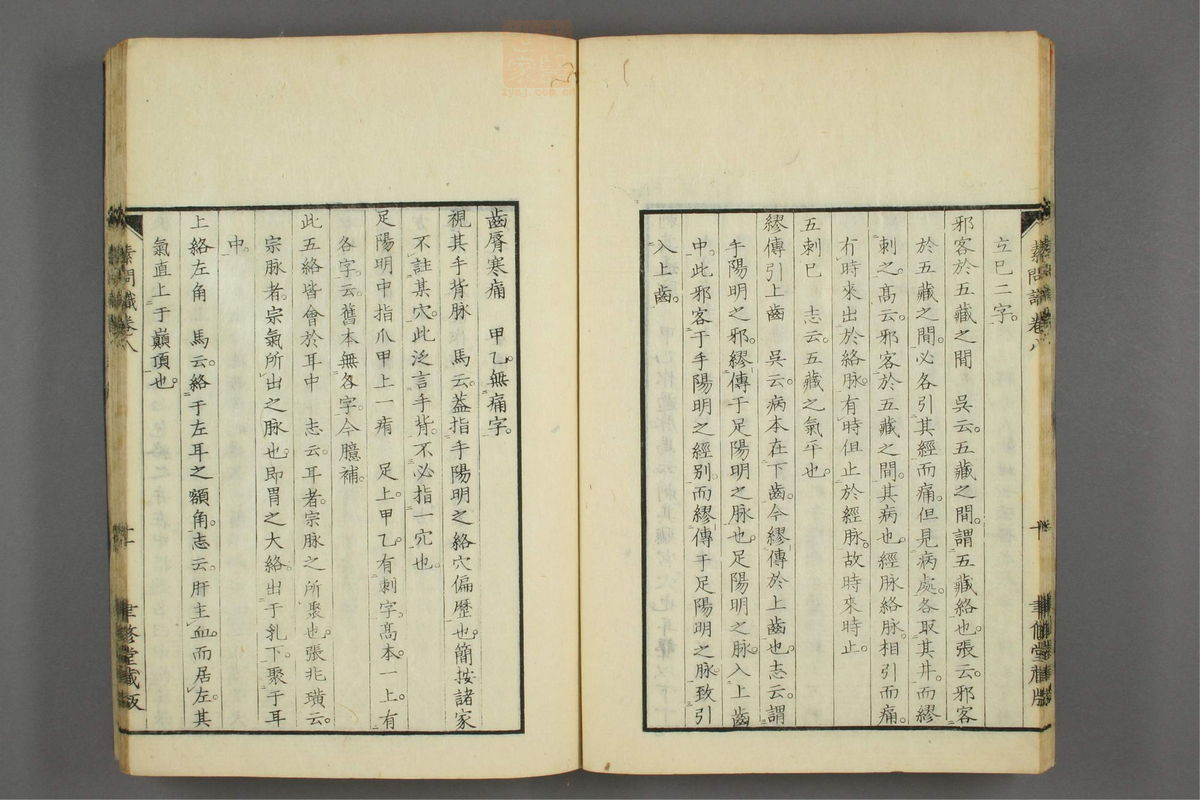 立巳二字。
邪客於五藏之間　吳云。五藏之間。謂五藏絡也。張云。邪客
於五藏之間。必各引其經而痛。但見病處。各取其井。而繆
刺之。高云。邪客於五藏之間。其病也。經脉絡脉。相引而痛。
有時來出於絡脉。有時但止於經脉。故時來時止。
五刺巳　志云。五藏之氣平也。
繆傳引上齒　吳云。病本在下齒。今繆傳於上齒也。志云。謂
手陽明之邪。繆傳于足陽明之脉也。足陽明之脉。入上齒
中。此邪客于手陽明之經別。而繆傳于足陽明之脉。致引
入上齒。
素問識卷八
十
聿修堂藏版
齒脣寒痛　甲乙。無痛字。
視其手背脉　馬云。葢指手陽明之絡穴偏歷也。簡按諸家
不註某穴。此泛言手背。不必指一穴也。
足陽明中指爪甲上一痏　足上。甲乙。有刺字。高本。一上。有
各字。云。舊本無各字。今臆補。
此五絡皆會於耳中　志云。耳者。宗脉之所聚也。張兆璜云。
宗脉者。宗氣所出之脉也。即胃之大絡。出于乳下。聚于耳
中。
上絡左角　馬云。絡于左耳之額角。志云。肝主血。而居左。其
氣直上于巔頂也。
素問識卷八
十一
聿修堂藏版